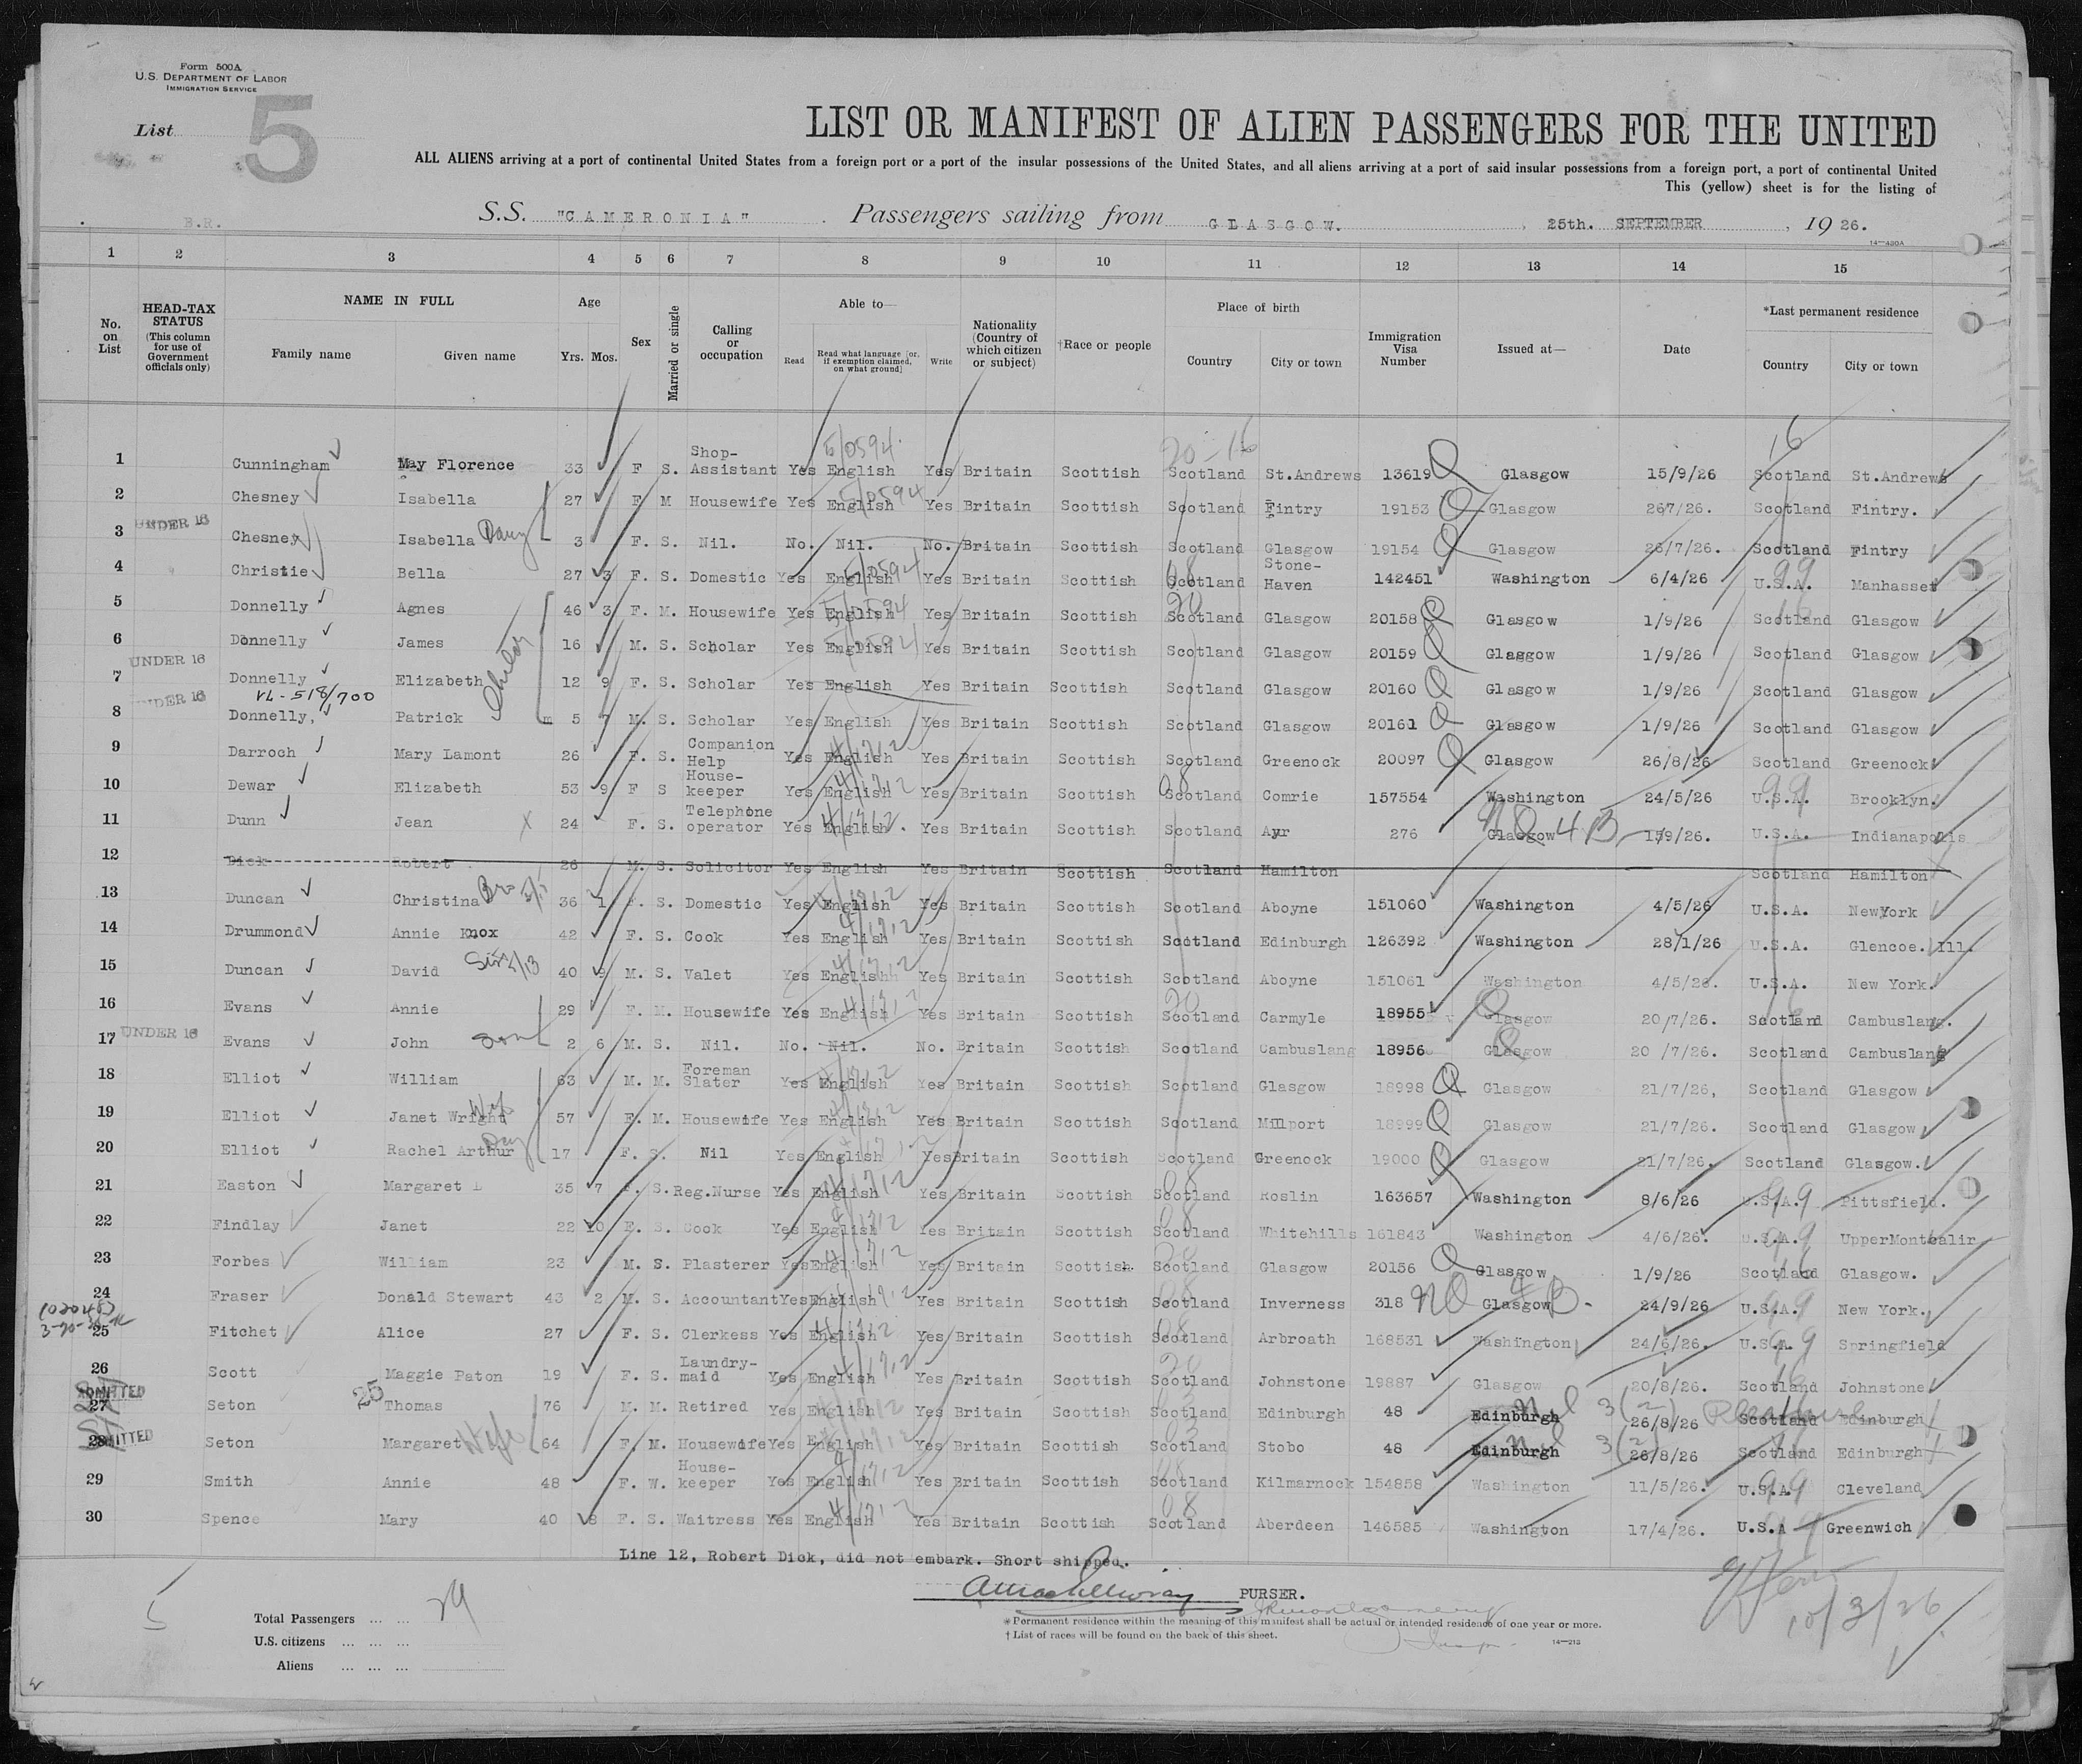 Form 500A
U.S. DEPARTMENT OF LABOR
IMMIGRATION SERVICE
List 5
LIST OR MANIFEST OF ALIEN PASSENGERS FOR THE UNITED
ALL ALIENS arriving at a port of continental United States from a foreign port or a port of the insular possessions of the United States, and all aliens arriving at a port of said insular possessions from a foreign port, a port of continental United
This (yellow) sheet is for the listing of
B.R. S.S. "CAMERONIA" Passengers sailing from GLASGOW. 25th. SEPTEMBER, 1926.
14—430A
1 2 3 4 5 6 7 8 9 10 11 12 13 14 15
No. on List HEAD-TAX STATUS (This column for use of Government officials only) NAME IN FULL Family name Given name Age Yrs. Mos. Sex Married or single Calling or occupation Able to— Read Read what language [or, if exemption claimed, on what ground] Write Nationality (Country of which citizen or subject) †Race or people Place of birth Country City or town Immigration Visa Number Issued at— Date *Last permanent residence Country City or town
5/0594 20-16 16
1 Cunningham May Florence 33 F S. Shop-Assistant Yes English Yes Britain Scottish Scotland St.Andrews 13619 Glasgow 15/9/26 Scotland St.Andrews
2 Chesney Isabella 27 F M Housewife Yes English Yes Britain Scottish Scotland Fintry 19153 Glasgow 267/26. Scotland Fintry.
UNDER 16
3 Chesney Isabella Daug 3 F. S. Nil. No. Nil. No. Britain Scottish Scotland Glasgow 19154 Glasgow 26/7/26. Scotland Fintry
4 Christie Bella 27 3 F. S. Domestic Yes English Yes Britain Scottish Scotland Stone-Haven 142451 Washington 6/4/26 U.S.A. Manhasset
5 Donnelly Agnes 46 3 F. M. Housewife Yes English Yes Britain Scottish Scotland Glasgow 20158 Glasgow 1/9/26 Scotland Glasgow
6 Donnelly James 16 M. S. Scholar Yes English Yes Britain Scottish Scotland Glasgow 20159 Glasgow 1/9/26 Scotland Glasgow
UNDER 16
7 Donnelly Elizabeth 12 9 F. S. Scholar Yes English Yes Britain Scottish Scotland Glasgow 20160 Glasgow 1/9/26 Scotland Glasgow
UNDER 16 VL-518/700
8 Donnelly, Patrick 5 7 M. S. Scholar Yes English Yes Britain Scottish Scotland Glasgow 20161 Glasgow 1/9/26 Scotland Glasgow
9 Darroch Mary Lamont 26 F. S. Companion Help Yes English Yes Britain Scottish Scotland Greenock 20097 Glasgow 26/8/26 Scotland Greenock
10 Dewar Elizabeth 53 9 F S House-keeper Yes English Yes Britain Scottish Scotland Comrie 157554 Washington 24/5/26 U.S.A. Brooklyn.
11 Dunn Jean X 24 F. S. Telephone operator Yes English. Yes Britain Scottish Scotland Ayr 276 Glasgow 4 B 159/26. U.S.A. Indianapolis
12 Dick Robert 26 M. S. Solicitor Yes English Yes Britain Scottish Scotland Hamilton Scotland Hamilton
13 Duncan Christina 36 1 F. S. Domestic Yes English Yes Britain Scottish Scotland Aboyne 151060 Washington 4/5/26 U.S.A. NewYork
14 Drummond Annie Knox 42 F. S. Cook Yes English Yes Britain Scottish Scotland Edinburgh 126392 Washington 28/1/26 U.S.A. Glencoe. Ill.
15 Duncan David 40 9 M. S. Valet Yes English Yes Britain Scottish Scotland Aboyne 151061 Washington 4/5/26. U.S.A. New York.
16 Evans Annie 29 F. M. Housewife Yes English Yes Britain Scottish Scotland Carmyle 18955 Glasgow 20/7/26. Scotland Cambuslang.
UNDER 16
17 Evans John Son 2 6 M. S. Nil. No. Nil. No. Britain Scottish Scotland Cambuslang 18956 Glasgow 20 /7/26. Scotland Cambuslang
18 Elliot William 63 M. M. Foreman Slater Yes English Yes Britain Scottish Scotland Glasgow 18998 Glasgow 21/7/26, Scotland Glasgow
19 Elliot Janet Wright Wife 57 F. M. Housewife Yes English Yes Britain Scottish Scotland Millport 18999 Glasgow 21/7/26. Scotland Glasgow
20 Elliot Rachel Arthur Daug 17 F. S. Nil Yes English Yes Britain Scottish Scotland Greenock 19000 Glasgow 21/7/26. Scotland Glasgow.
21 Easton Margaret 35 7 F. S. Reg.Nurse Yes English Yes Britain Scottish Scotland Roslin 163657 Washington 8/6/26 U.S.A. Pittsfield.
22 Findlay Janet 22 10 F. S. Cook Yes English Yes Britain Scottish Scotland Whitehills 161843 Washington 4/6/26. U.S.A. UpperMontcalir
23 Forbes William 23 M. S. Plasterer Yes English Yes Britain Scottish Scotland Glasgow 20156 Glasgow 1/9/26 Scotland Glasgow.
24 Fraser Donald Stewart 43 2 M. S. Accountant Yes English Yes Britain Scottish Scotland Inverness 318 Glasgow 4 B. 24/9/26 U.S.A. New York.
25 Fitchet Alice 27 F. S. Clerkess Yes English Yes Britain Scottish Scotland Arbroath 168531 Washington 24/6/26. U.S.A. Springfield
26 Scott Maggie Paton 19 F. S. Laundry-maid Yes English Yes Britain Scottish Scotland Johnstone 19887 Glasgow 20/8/26. Scotland Johnstone
ADMITTED 25
27 Seton Thomas 76 M. M. Retired Yes English Yes Britain Scottish Scotland Edinburgh 48 Edinburgh 3(2) 26/8/26 Scotland Edinburgh
ADMITTED
28 Seton Margaret Wife 64 F. M. Housewife Yes English Yes Britain Scottish Scotland Stobo 48 Edinburgh 3(2) 26/8/26 Scotland Edinburgh
29 Smith Annie 48 F. W. House-keeper Yes English Yes Britain Scottish Scotland Kilmarnock 154858 Washington 11/5/26. U.S.A. Cleveland
30 Spence Mary 40 8 F. S. Waitress Yes English Yes Britain Scottish Scotland Aberdeen 146585 Washington 17/4/26. U.S.A Greenwich
Line 12, Robert Dick, did not embark. Short shipped.
PURSER.
Total Passengers ... ... 29
U.S. citizens ... ... ...
Aliens ... ... ...
* Permanent residence within the meaning of this manifest shall be actual or intended residence of one year or more.
† List of races will be found on the back of this sheet.
14—213
10/3/26